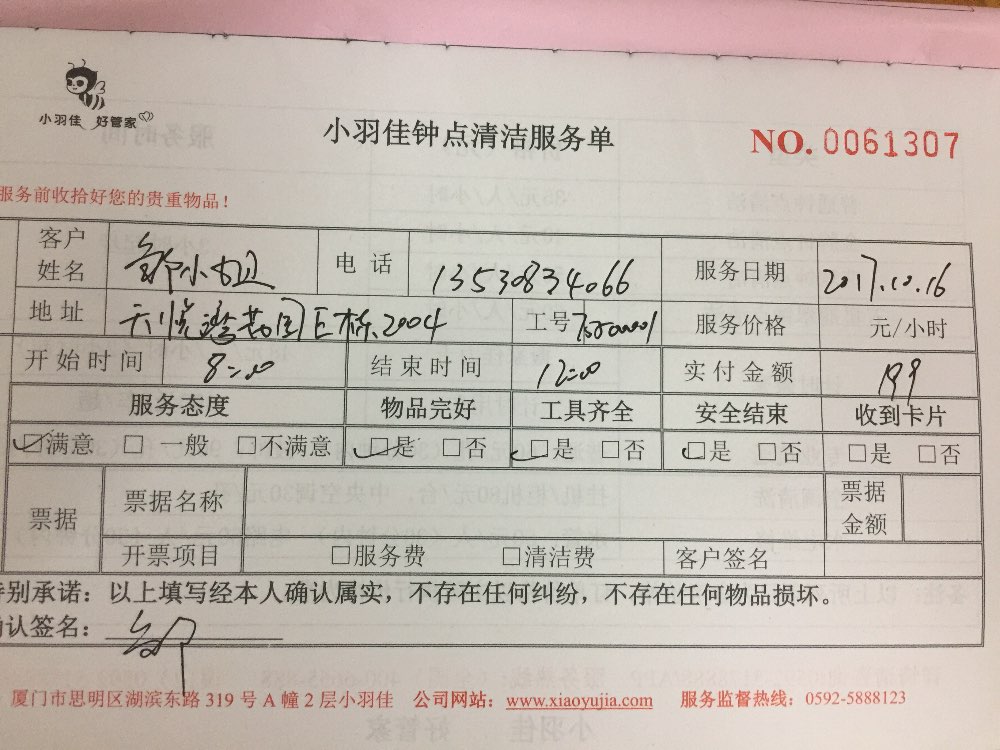 小羽佳 好管家
小羽佳钟点清洁服务单 NO. 0061307
服务前收拾好您的贵重物品！
客户姓名 邹小姐 电话 13530834066 服务日期 2017.10.16
地址 天悦湾花园E栋2004 工号 服务价格 元/小时
开始时间 8:00 结束时间 12:00 实付金额 199
服务态度 物品完好 工具齐全 安全结束 收到卡片
☑满意 □一般 □不满意 ☑是 □否 ☑是 □否 ☑是 □否 □是 □否
票据 票据名称 票据金额
开票项目 □服务费 □清洁费 客户签名
特别承诺：以上填写经本人确认属实，不存在任何纠纷，不存在任何物品损坏。
确认签名： 邹
厦门市思明区湖滨东路 319 号 A 幢 2 层小羽佳 公司网站：www.xiaoyujia.com 服务监督热线：0592-5888123